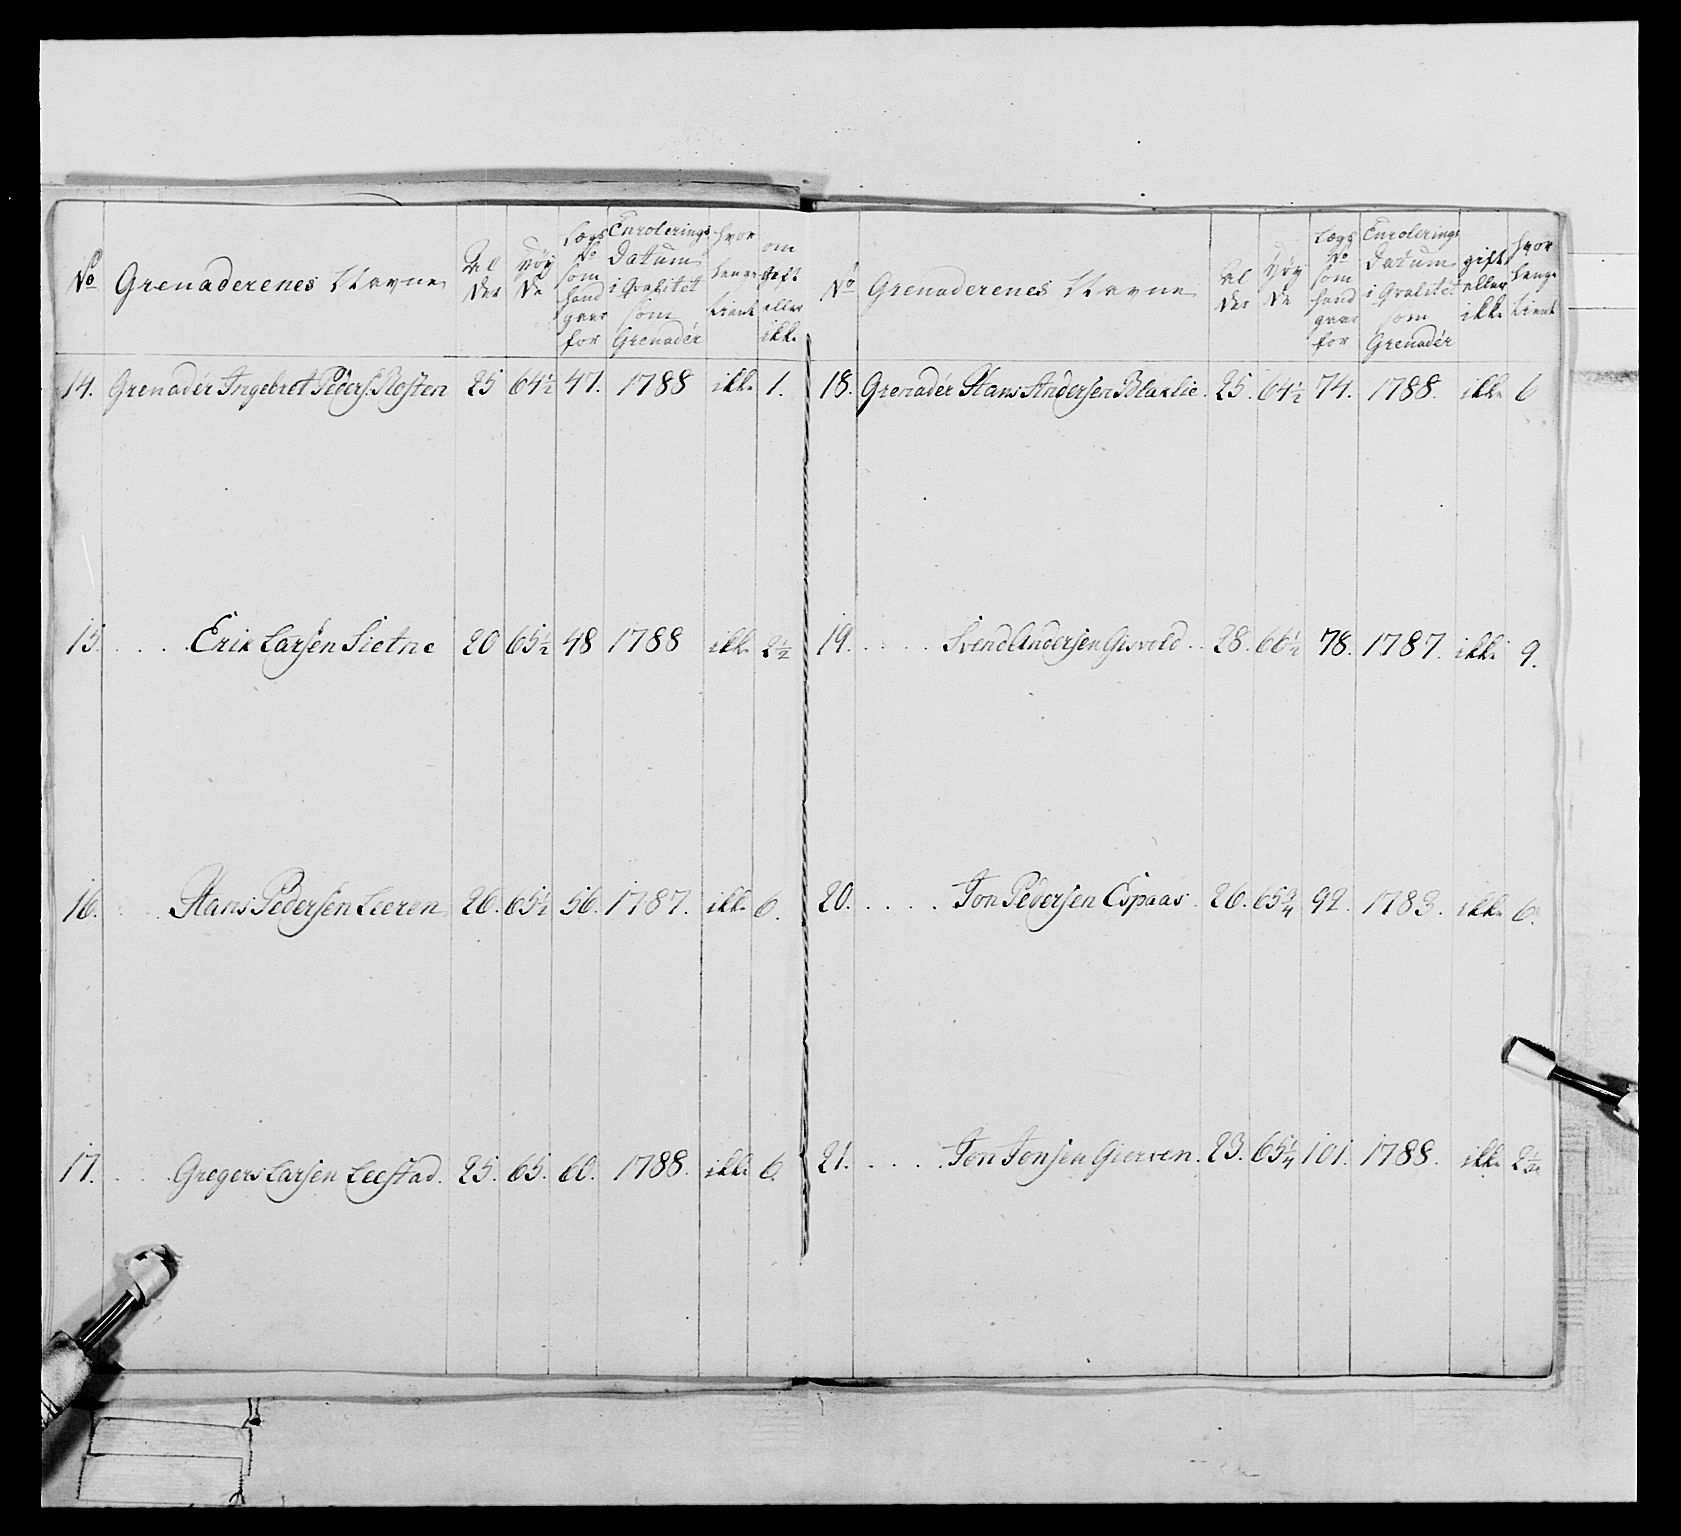 No Grenaderenes Navne Al der Høy de Lægs No som hand giør for Enrolerings Datum i Qvalitet som Grenadér hvor lenge tient om gift eller ikke
14. Grenadér Ingebret Peders. Rosten 25 64½ 47. 1788 ikke 1.
15. . . . Erik Larsen Sietne 20 65½ 48 1788 ikke 2½
16. . . Hans Pedersen Leeren 26. 65½ 56. 1787. ikke 6.
17. . . . Gregers Larsen Leestad. 25. 65. 60. 1788. ikke 6.
No Grenaderenes Navne Al der Høy de Lægs No som hand giør for Enrolerings Datum i Qvalitet som Grenadér gift eller ikke hvor lenge tient
18. Grenadér Hans Andersen Blaklie. 25. 64½ 74. 1788. ikke 6
19. . . . . Svend Andersen Gisvold . . 28. 66½ 78. 1787. ikke 9.
20. . . . . Jon Pedersen Espaas. 26. 65¾ 92. 1783. ikke 6.
21. . . . . Jon Jonsen Gierven. 23. 65¼ 101. 1788. ikke 2½